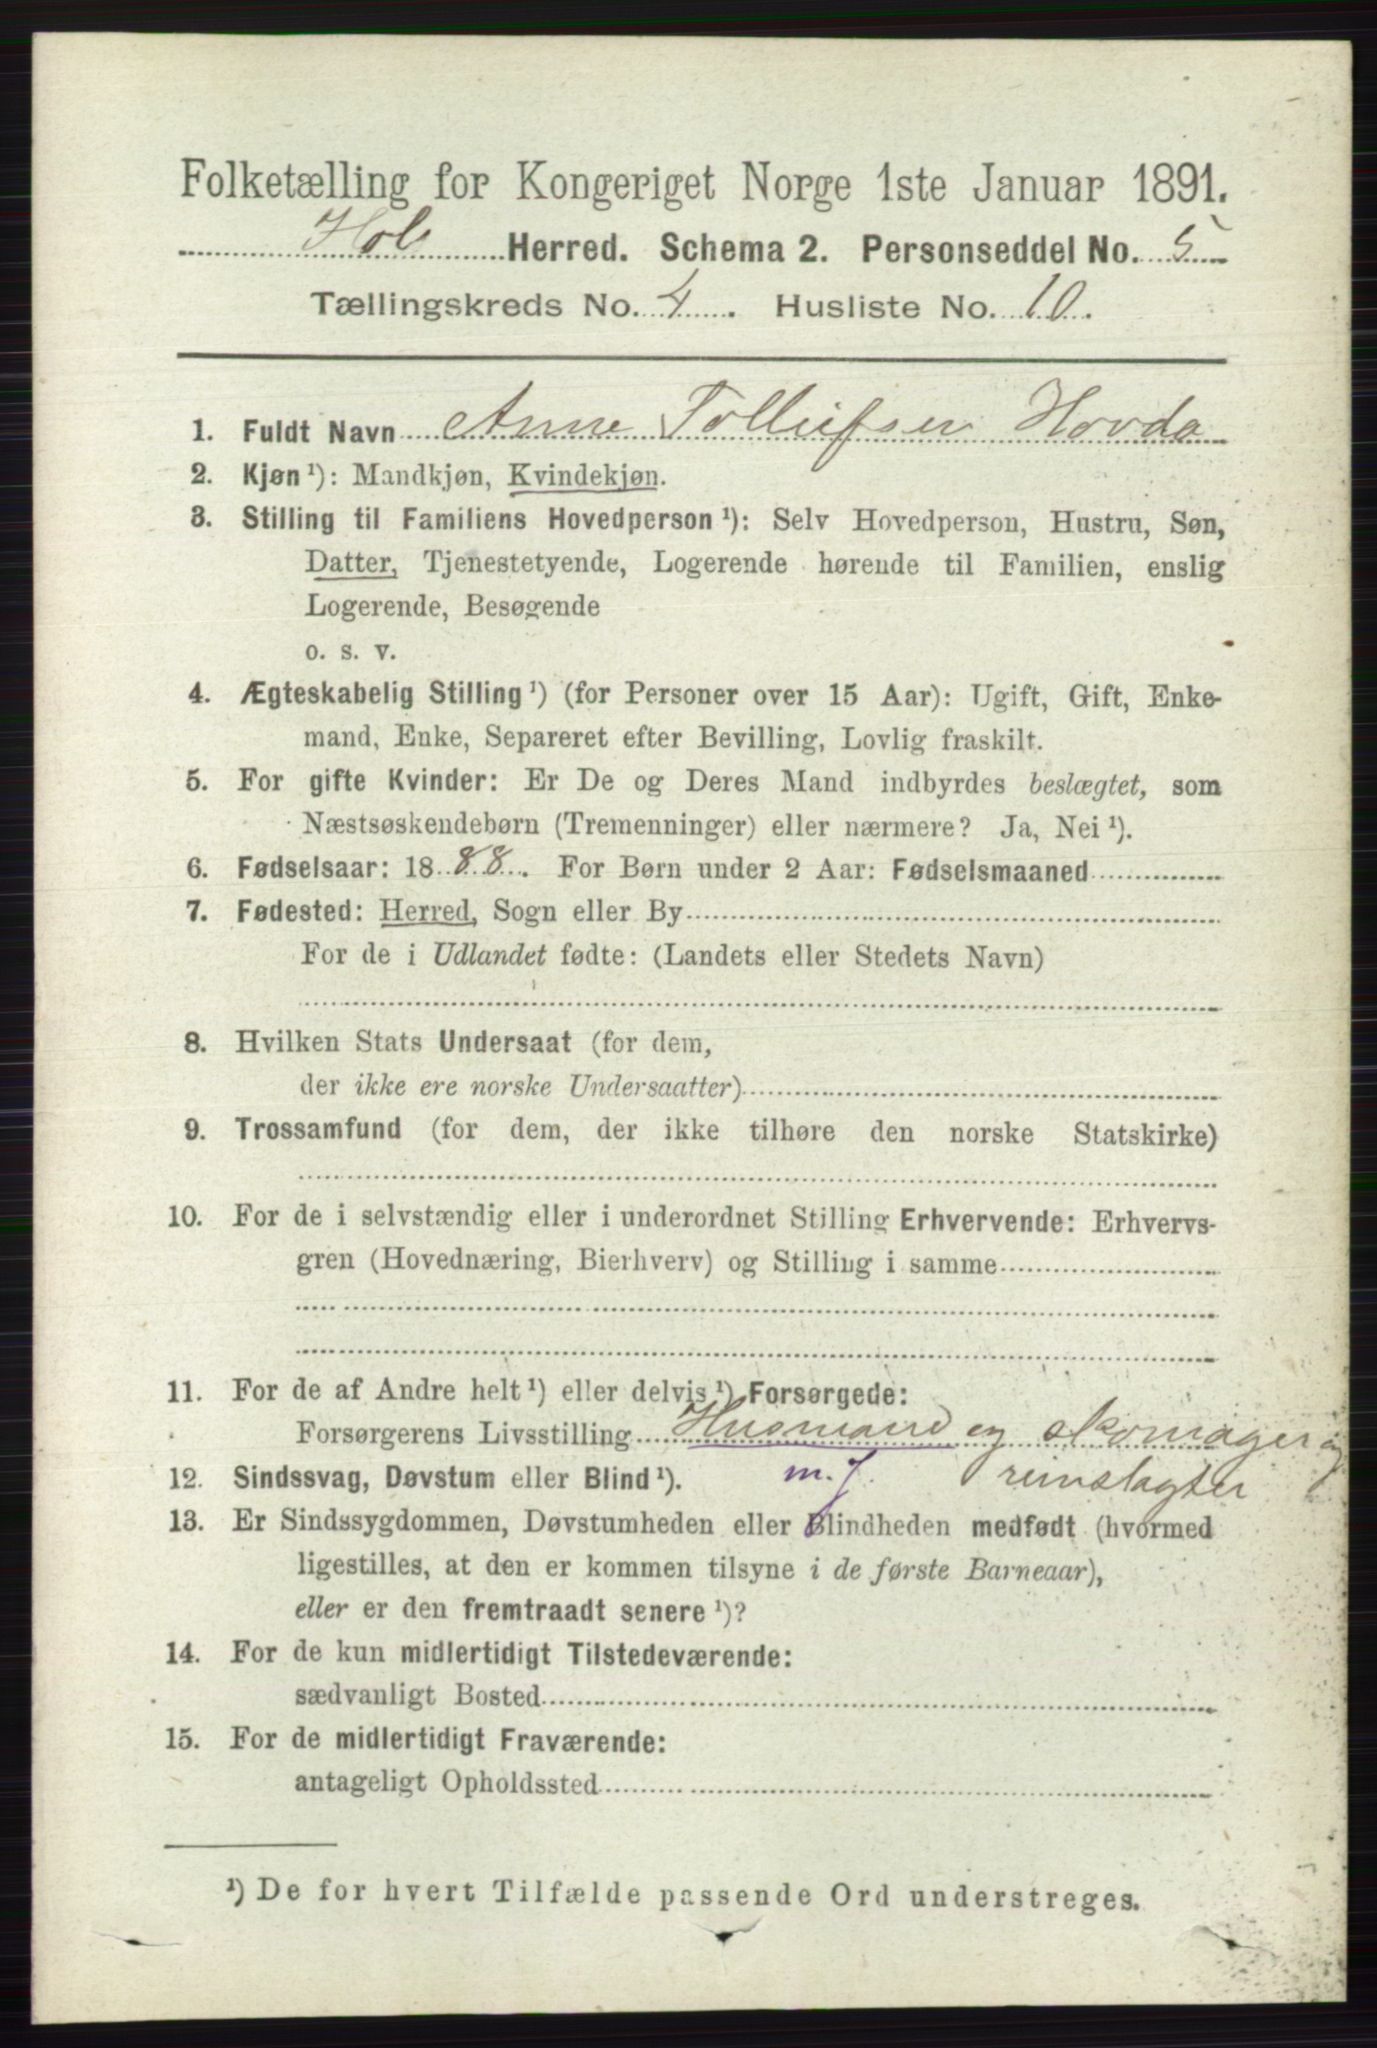 Folketælling for Kongeriget Norge 1ste Januar 1891.
Hol Herred. Schema 2. Personseddel No. 5
Tællingskreds No. 4. Husliste No. 10.
1. Fuldt Navn Anne Tollefsen Hovda
2. Kjøn¹): Mandkjøn, Kvindekjøn.
3. Stilling til Familiens Hovedperson¹): Selv Hovedperson, Hustru, Søn,
Datter, Tjenestetyende, Logerende hørende til Familien, enslig
Logerende, Besøgende
o. s. v.
4. Ægteskabelig Stilling¹) (for Personer over 15 Aar): Ugift, Gift, Enke-
mand, Enke, Separeret efter Bevilling, Lovlig fraskilt.
5. For gifte Kvinder: Er De og Deres Mand indbyrdes beslægtet, som
Næstsøskendebørn (Tremenninger) eller nærmere? Ja, Nei¹).
6. Fødselsaar: 1888. For Børn under 2 Aar: Fødselsmaaned
7. Fødested: Herred, Sogn eller By
For de i Udlandet fødte: (Landets eller Stedets Navn)
8. Hvilken Stats Undersaat (for dem,
der ikke ere norske Undersaatter)
9. Trossamfund (for dem, der ikke tilhøre den norske Statskirke)
10. For de i selvstændig eller i underordnet Stilling Erhvervende: Erhvervs-
gren (Hovednæring, Bierhverv) og Stilling i samme
11. For de af Andre helt¹) eller delvis¹) Forsørgede:
Forsørgerens Livsstilling Husmand og skomager og
12. Sindssvag, Døvstum eller Blind¹). m. J. reinslagter
13. Er Sindssygdommen, Døvstumheden eller Blindheden medfødt (hvormed
ligestilles, at den er kommen tilsyne i de første Barneaar),
eller er den fremtraadt senere¹)?
14. For de kun midlertidigt Tilstedeværende:
sædvanligt Bosted
15. For de midlertidigt Fraværende:
antageligt Opholdssted
¹) De for hvert Tilfælde passende Ord understreges.